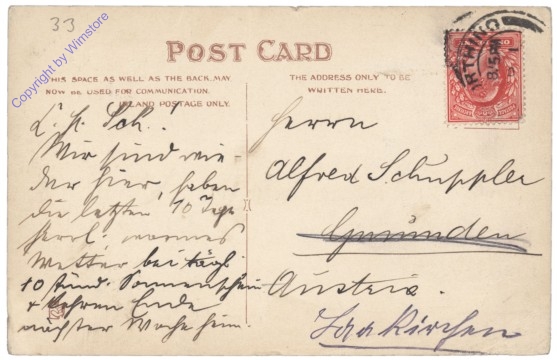 33
Copyright by Wimstore
POST CARD
THIS SPACE AS WELL AS THE BACK MAY
NOW BE USED FOR COMMUNICATION.
INLAND POSTAGE ONLY.
THE ADDRESS ONLY TO BE
WRITTEN HERE.
RTHING
8.15PM
L. H. Sch.!
Wir sind wie-
der hier, haben
die letzten 10 Tage
herrl. warmes
Wetter bei tägl.
10 stünd. Sonnenschein
+ kehren Ende
nächster Woche heim.
Herrn
Alfred Schuppler
Gmunden
Austria.
Laakirchen